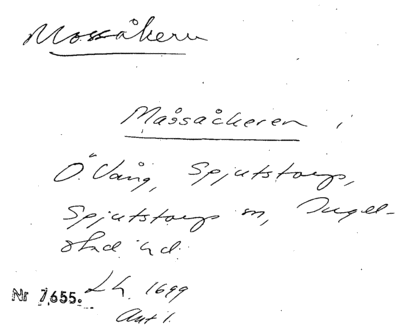 Mossåkern
Måssåckeren i
Ö. Vång, Spjutstorps,
Spjutstorps sn, Ingel-
stad hd.
Nr 7655. Lh. 1699
Akt 1.